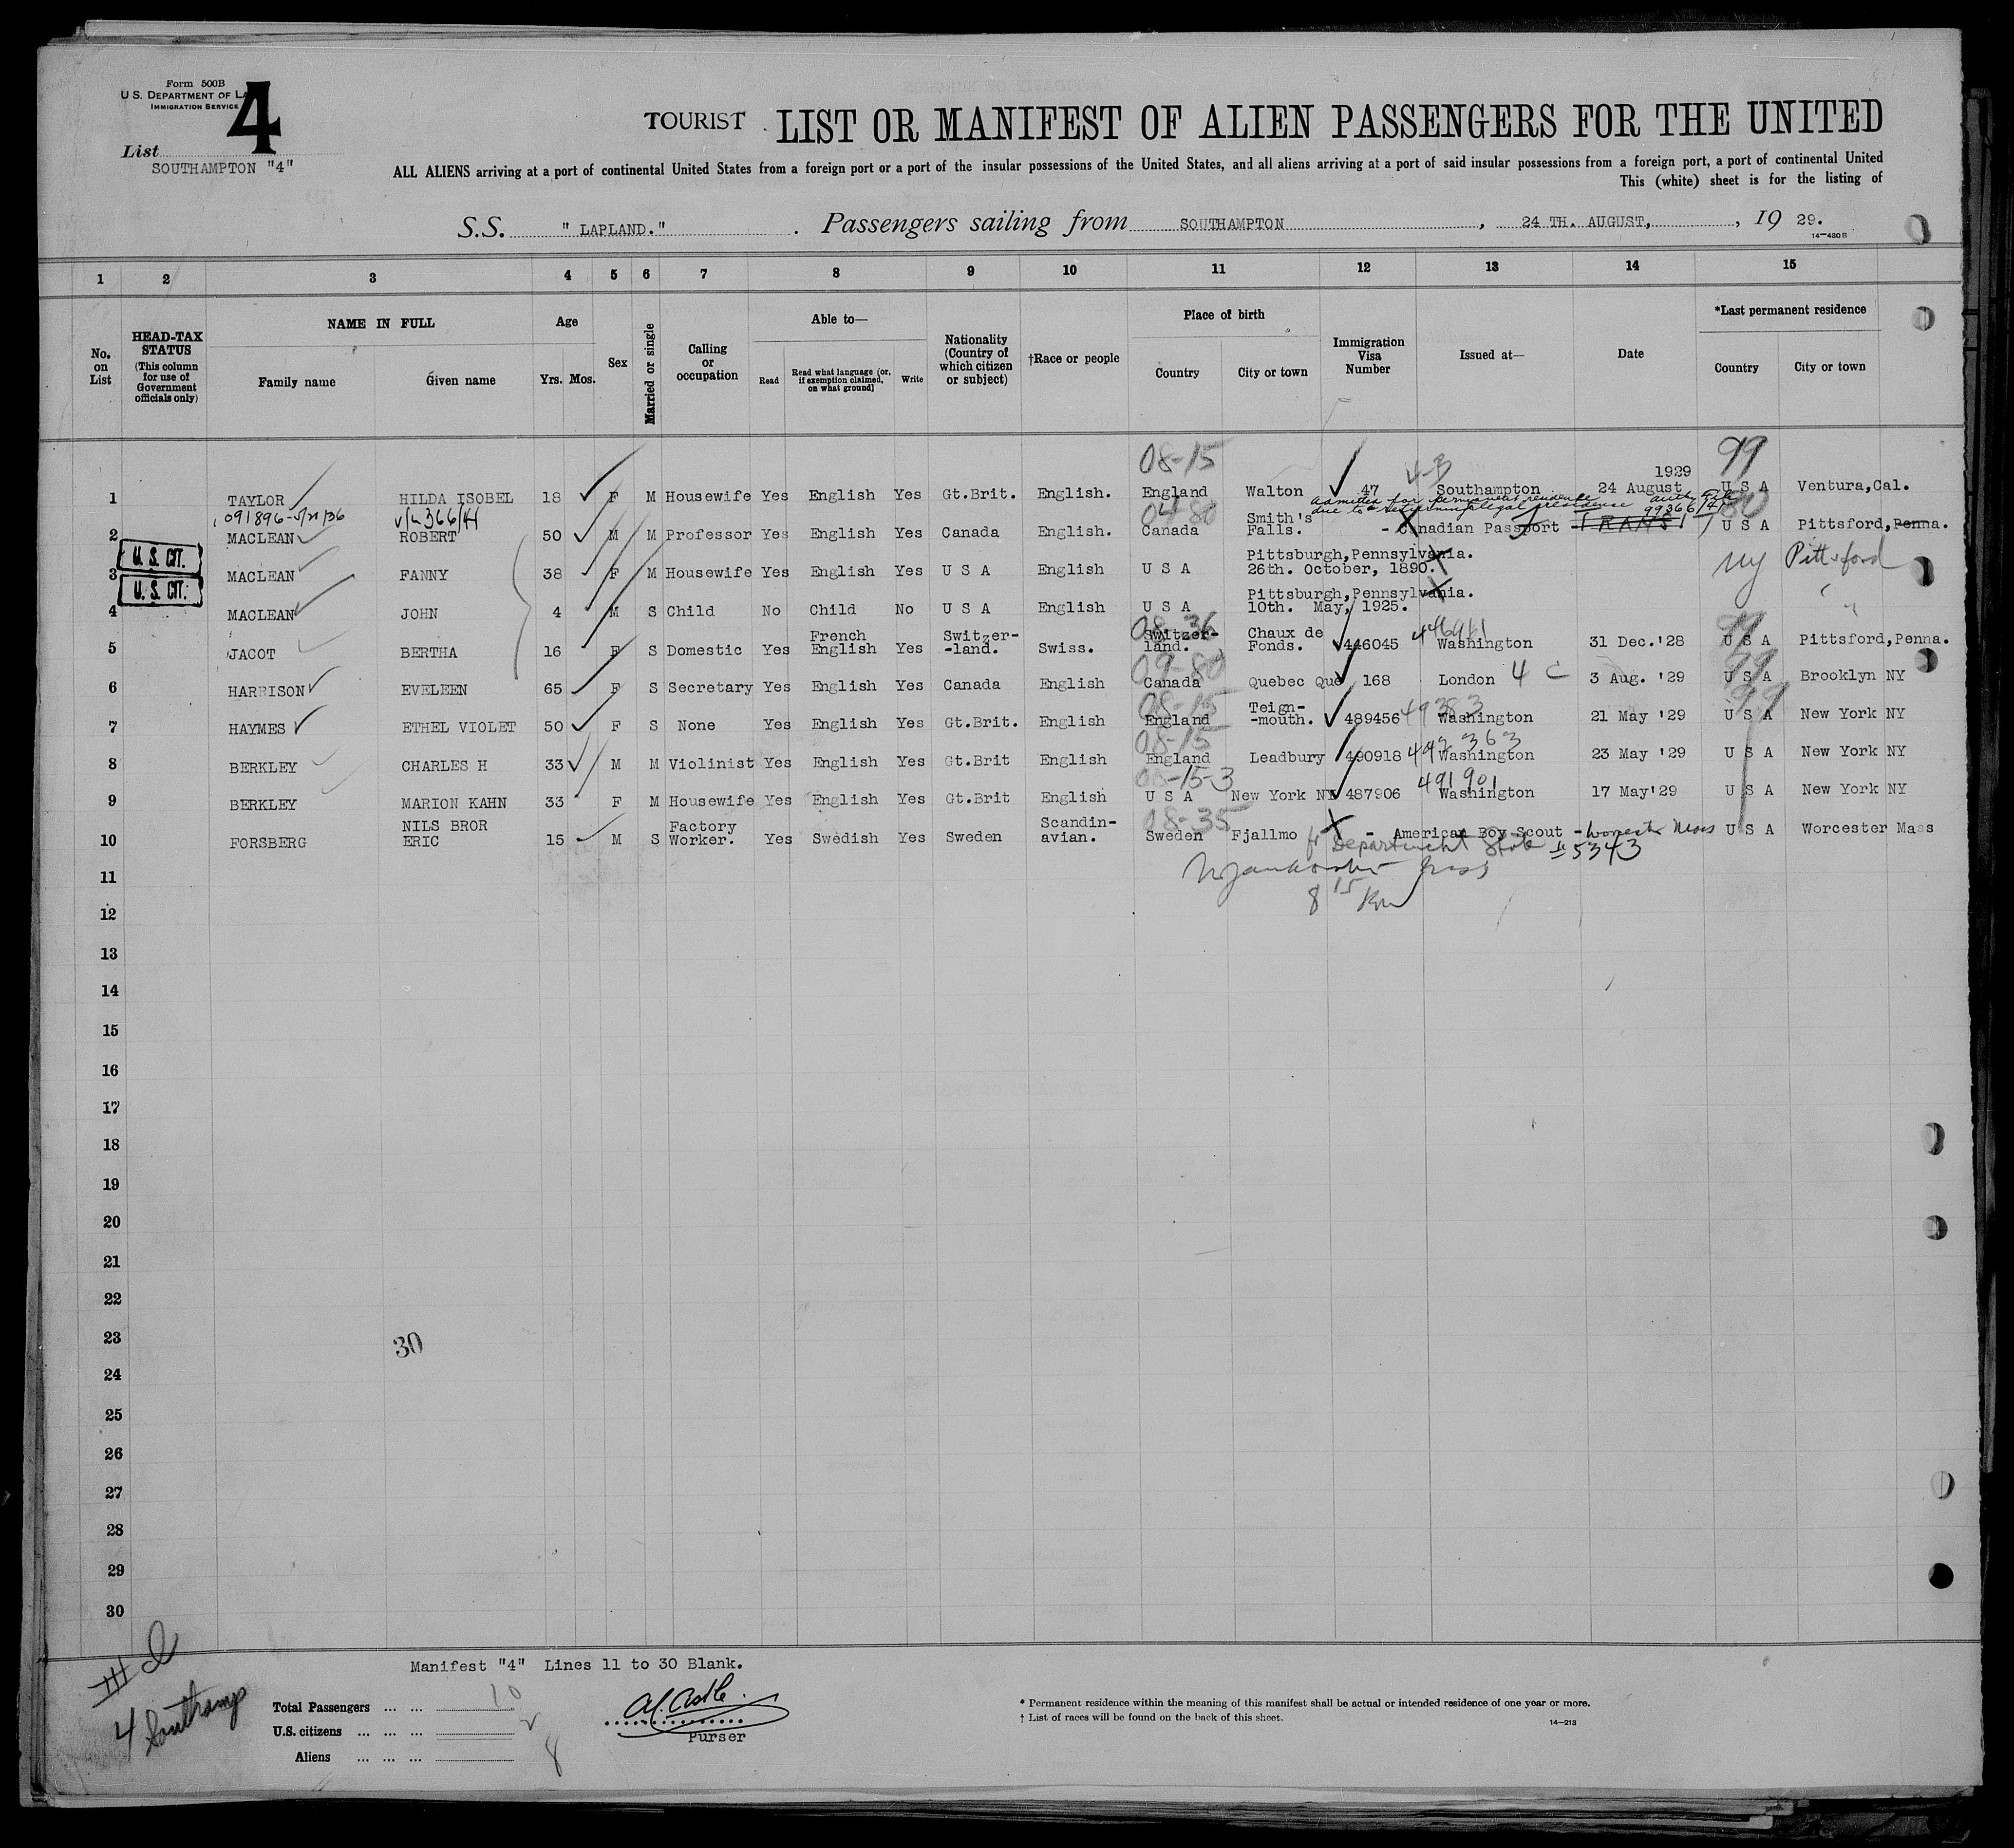 Form 500B
U.S. DEPARTMENT OF LA
IMMIGRATION SERVICE
4
List
SOUTHAMPTON "4"
TOURIST LIST OR MANIFEST OF ALIEN PASSENGERS FOR THE UNITED
ALL ALIENS arriving at a port of continental United States from a foreign port or a port of the insular possessions of the United States, and all aliens arriving at a port of said insular possessions from a foreign port, a port of continental United
This (white) sheet is for the listing of
S.S. " LAPLAND." . Passengers sailing from SOUTHAMPTON , 24 TH. AUGUST, , 19 29.
14—480B
1 2 3 4 5 6 7 8 9 10 11 12 13 14 15
No. on List
HEAD-TAX STATUS (This column for use of Government officials only)
NAME IN FULL
Family name Given name
Age
Yrs. Mos.
Sex
Married or single
Calling or occupation
Able to—
Read Read what language (or, if exemption claimed, on what ground) Write
Nationality (Country of which citizen or subject)
†Race or people
Place of birth
Country City or town
Immigration Visa Number
Issued at—
Date
*Last permanent residence
Country City or town
08-15 4-B 1929 99
1 TAYLOR HILDA ISOBEL 18 F M Housewife Yes English Yes Gt.Brit. English. England Walton 47 Southampton 24 August U S A Ventura,Cal.
091896-5/21/36 99366/41
admitted for permanent residence
due to legal residence
2 MACLEAN ROBERT 50 M M Professor Yes English Yes Canada English. Canada Smith's Falls. - Canadian Passport TRANS U S A Pittsford, Penna.
U. S. CIT.
3 MACLEAN FANNY 38 F M Housewife Yes English Yes U S A English U S A Pittsburgh,Pennsylvania. 26th. October, 1890. NY Pittsford
U. S. CIT.
4 MACLEAN JOHN 4 M S Child No Child No U S A English U S A Pittsburgh,Pennsylvania. 10th. May, 1925. " "
08-36 99
5 JACOT BERTHA 16 F S Domestic Yes French English Yes Switzer--land. Swiss. Switzer-land. Chaux de Fonds. 446045 Washington 31 Dec.'28 U S A Pittsford,Penna.
09-80 99
6 HARRISON EVELEEN 65 F S Secretary Yes English Yes Canada English Canada Quebec Que 168 London 4 C 3 Aug. '29 U S A Brooklyn NY
08-15 99
7 HAYMES ETHEL VIOLET 50 F S None Yes English Yes Gt.Brit. English England Teign--mouth. 489456 Washington 21 May '29 U S A New York NY
08-15 492363
8 BERKLEY CHARLES H 33 M M Violinist Yes English Yes Gt.Brit English England Leadbury 490918 Washington 23 May '29 U S A New York NY
08-15-3 491901
9 BERKLEY MARION KAHN 33 F M Housewife Yes English Yes Gt.Brit English U S A New York NY 487906 Washington 17 May'29 U S A New York NY
08-35
10 FORSBERG NILS BROR ERIC 15 M S Factory Worker. Yes Swedish Yes Sweden Scandin-avian. Sweden Fjallmo - American Boy Scout - Worcester Mass U S A Worcester Mass
Department State #5343
11
8 15
12
13
14
15
16
17
18
19
20
21
22
23
30
24
25
26
27
28
29
30
Manifest "4" Lines 11 to 30 Blank.
4 Southamp
Total Passengers ... ... 10
U.S. citizens ... ... ... 2
Aliens ... ... ... 8
A. Castle
Purser
* Permanent residence within the meaning of this manifest shall be actual or intended residence of one year or more.
† List of races will be found on the back of this sheet.
14—213